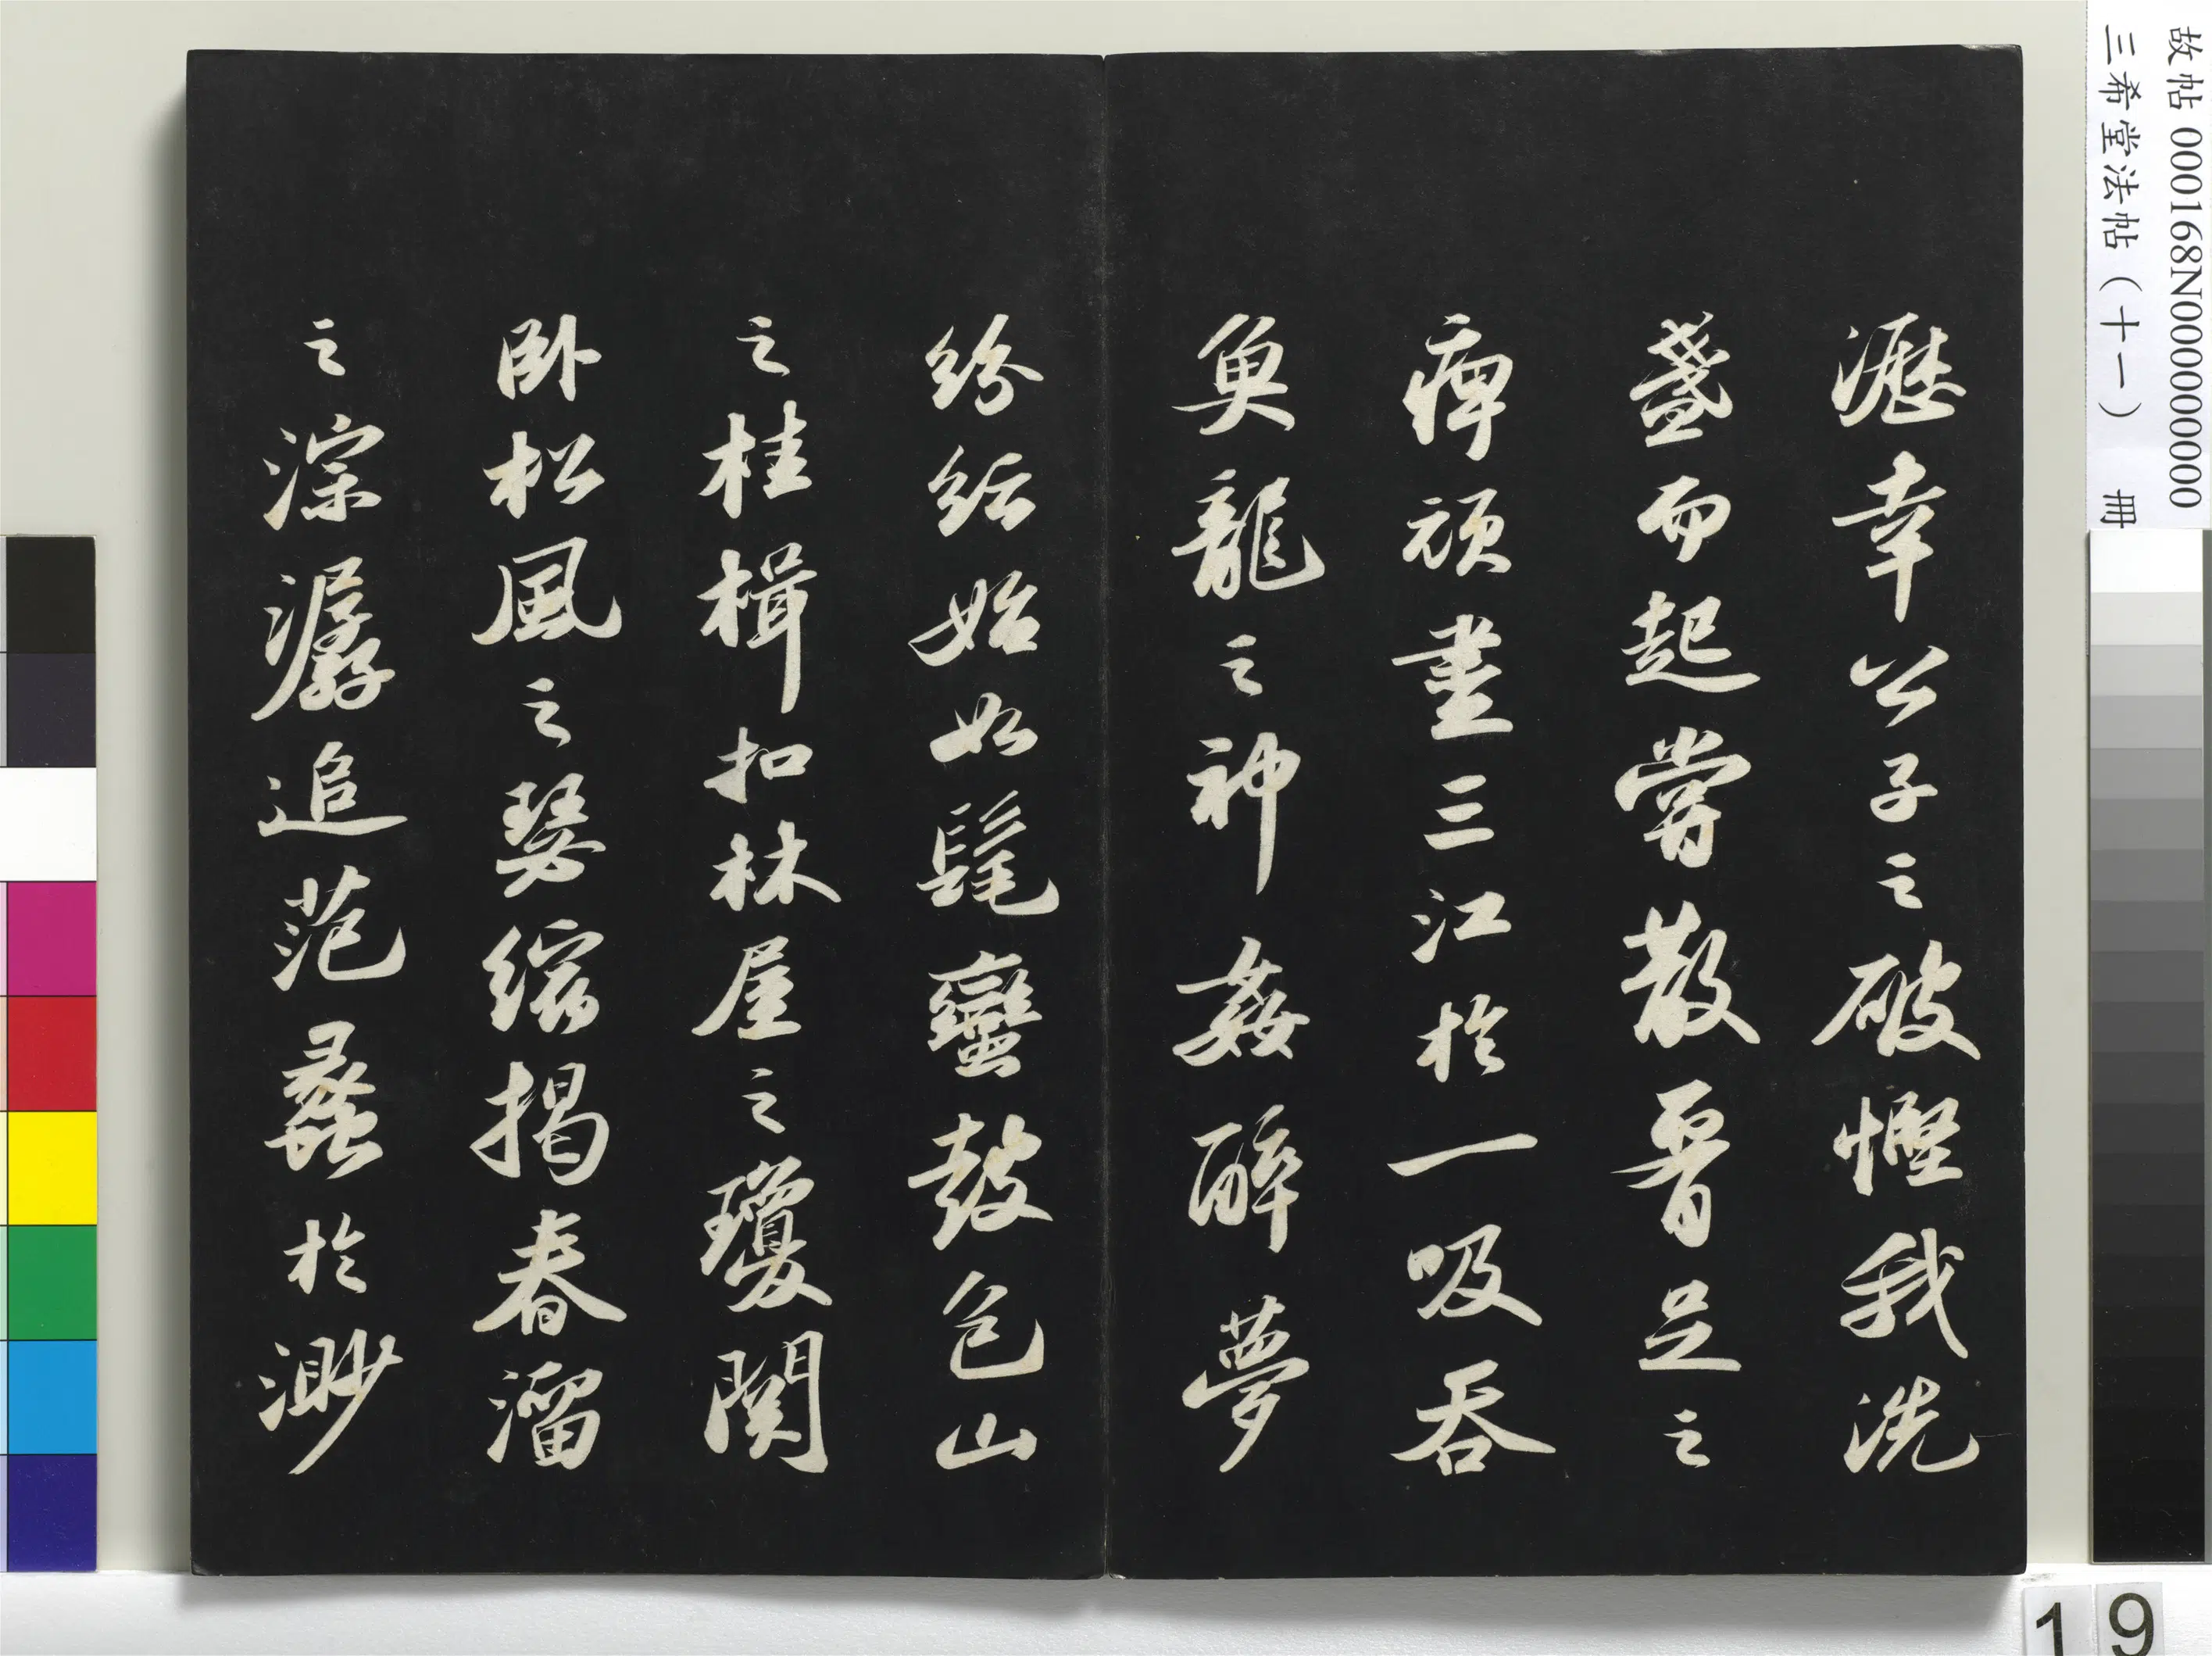 故帖 000168N000000000
三希堂法帖（十一） 冊
瀝幸公子之破慳我洗
盞而起嘗散腰足之
痺頑盡三江於一吸吞
魚龍之神姦醉夢
紛紜始如髦蠻鼓包山
之桂楫扣林屋之瓊關
卧松風之瑟縮揭春溜
之淙潺追范蠡於渺
19